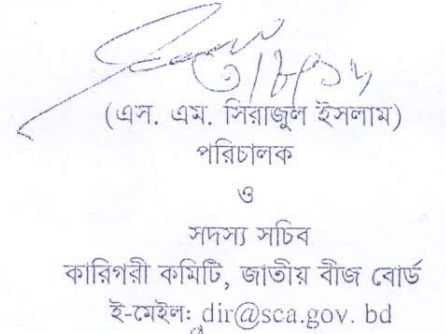 (এস. এম. সিরাজুল ইসলাম)
পরিচালক
ও
সদস্য সচিব
কারিগরী কমিটি, জাতীয় বীজ বোর্ড
ই-মেইল: dir@sca.gov. bd